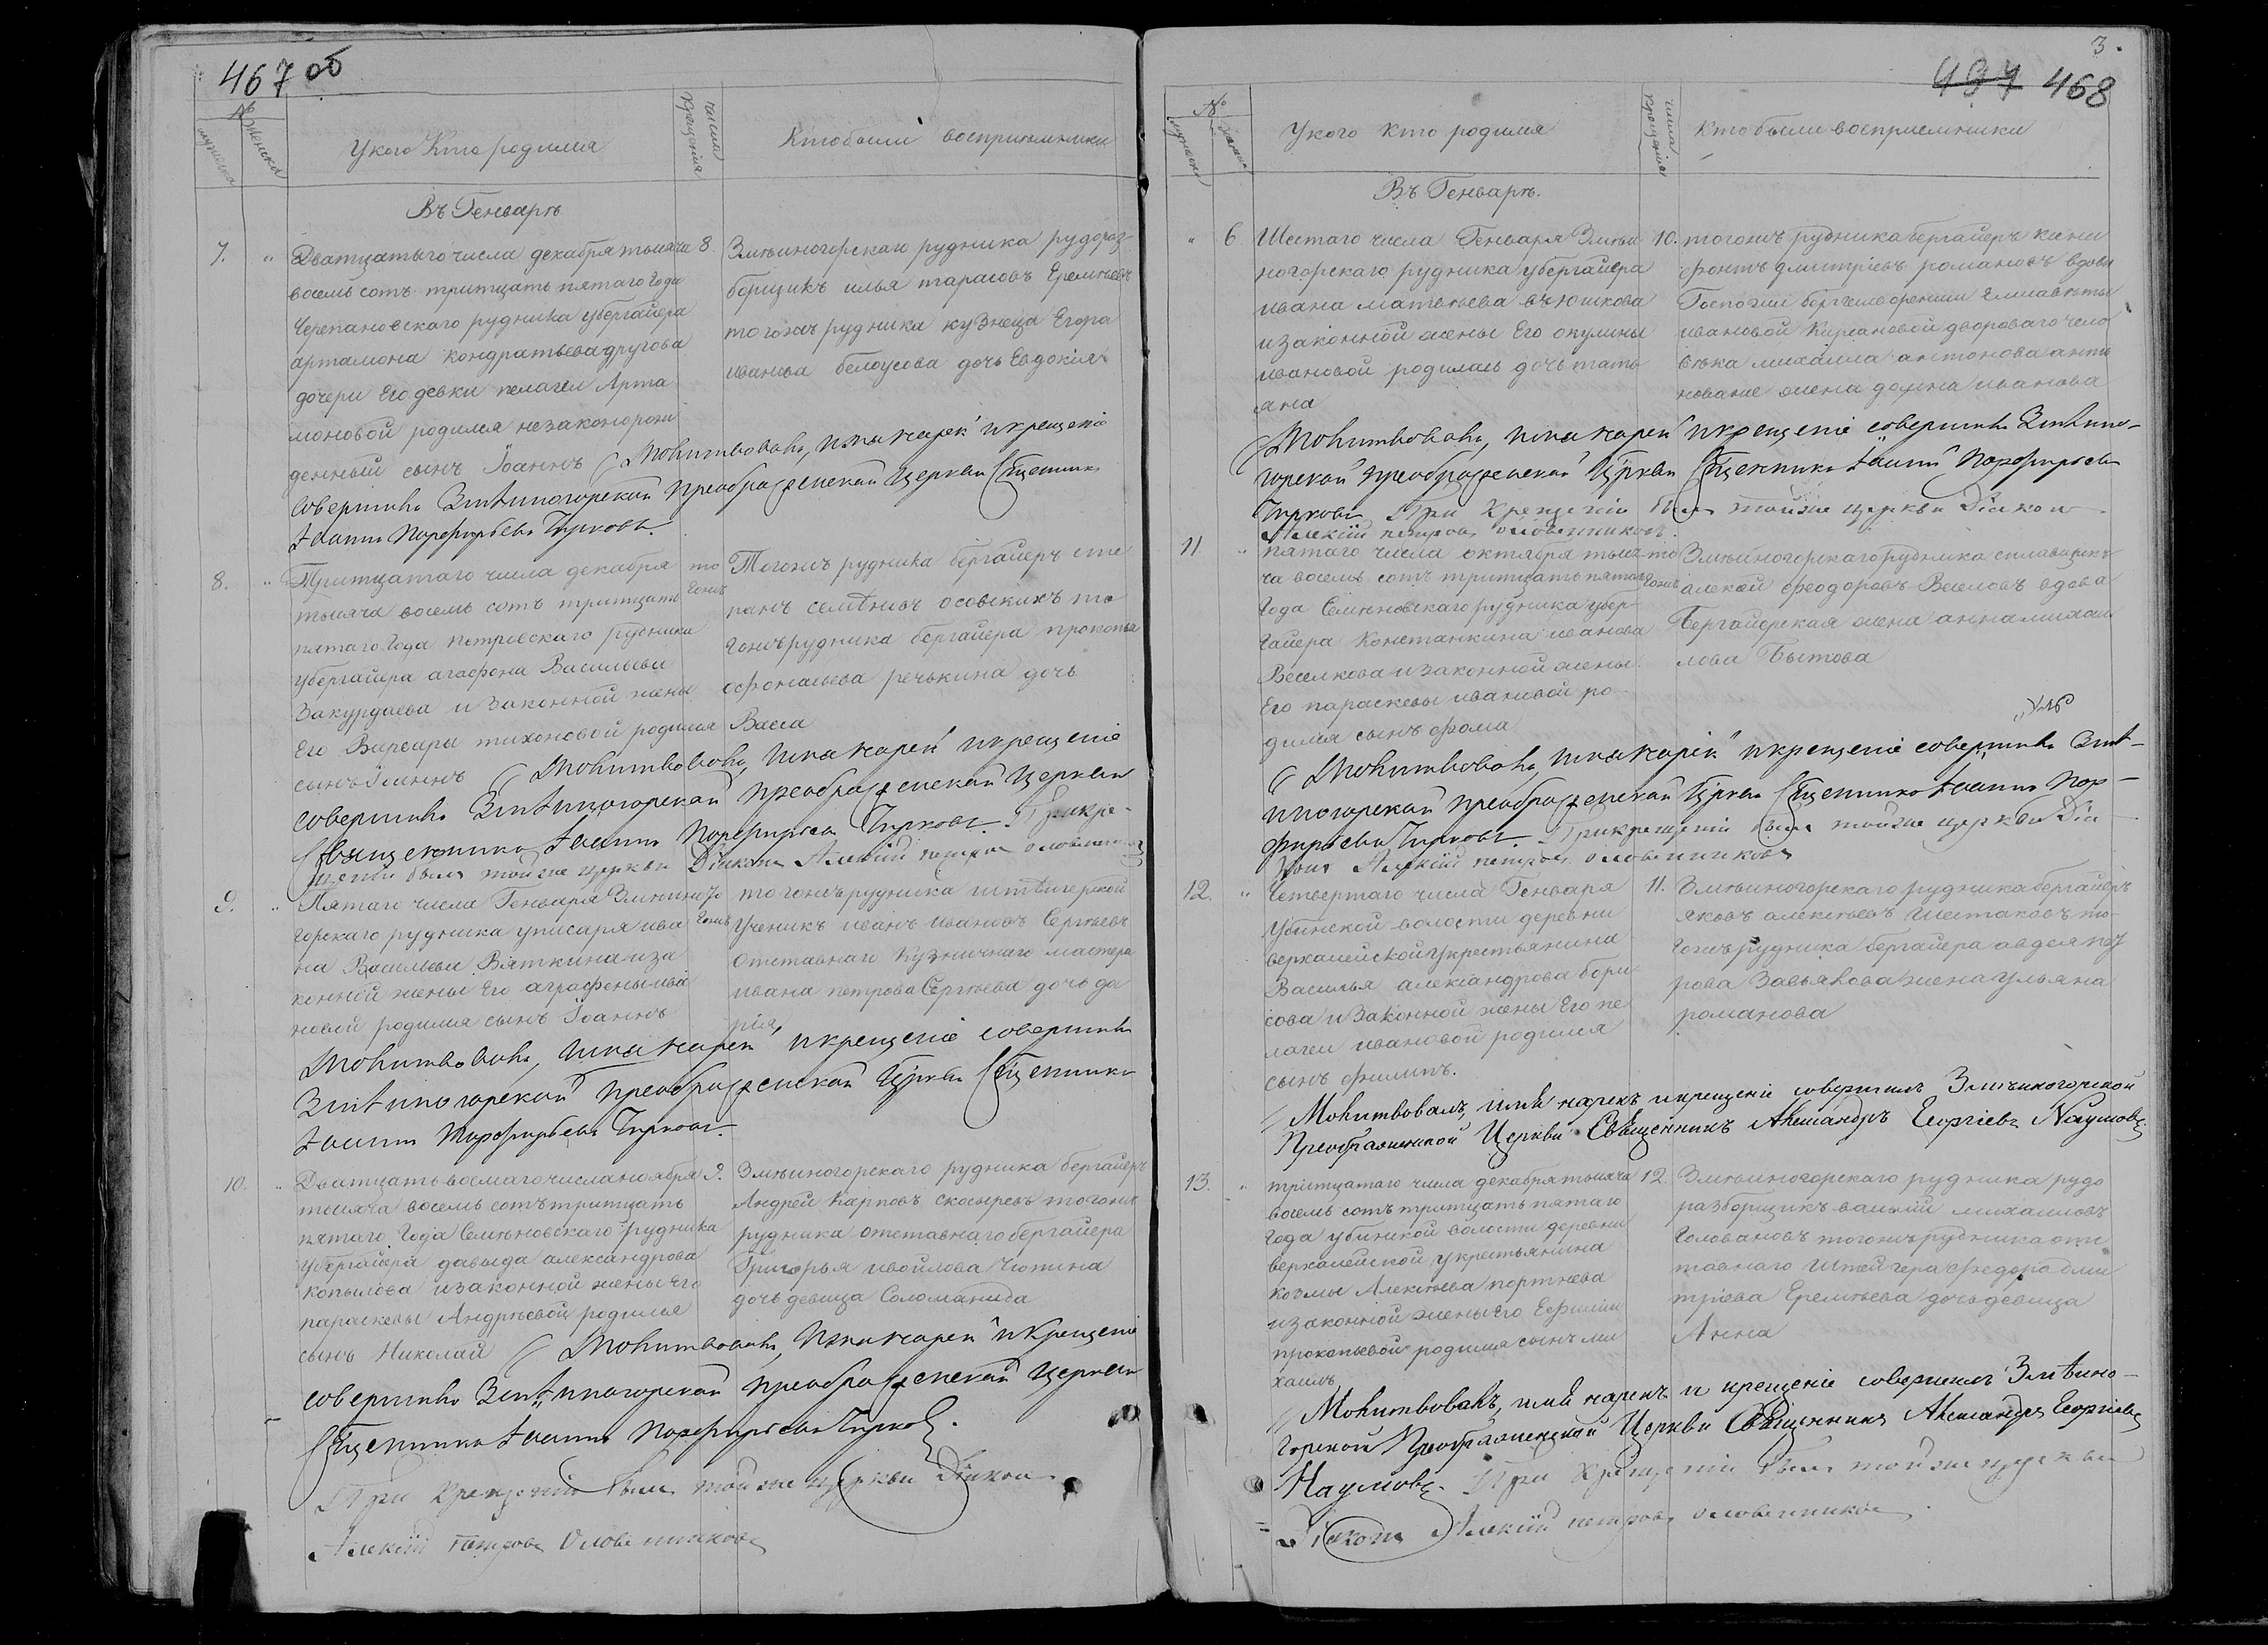 467 об
№
мужеска
женска
У кого Кто родился
число крещенія
Кто были восприемники
Въ Генварѣ
7.
Дватцатого числа декабря тысяча
восемь сотъ тритцать пятаго Года
Черепановскаго рудника убергайера
артамона кондратьева другова
дочери Его девки пелагеи Арта
моновой родился незаконорож
денный сынъ Іоаннъ
8.
Змѣиногорскаго рудника рудораз-
борщикъ илья тарасовъ Еремѣевъ
тогожъ рудника кузнеца Егора
иванова белоусова дочь Евдокія
Молитвовалъ, имя нарекъ и крещеніе
совершилъ Змѣиногорской преображенской Церкви Священникъ
Іоаннъ Порфирьевъ Тирковъ.
8.
Тритцатаго числа декабря
тысяча восемь сотъ тритцать
пятаго Года петровскаго рудника
убергайера агафона Васильева
Закурдаева и законной жены
Его Варвары тихоновой родился
сынъ Іоаннъ
тогожъ
Тогожъ рудника бергайеръ сте
панъ семеновъ осовскихъ то
гожъ рудника бергайера прокопья
афонасьева речькина дочь
Васса
Молитвовалъ, имя нарекъ и крещеніе
совершилъ Змѣиногорской преображенской Церкви
Священникъ Іоаннъ Порфирьевъ Тирковъ. При кре-
щеніи былъ тойже церкви Діаконъ Алексій петровъ оловянишниковъ
9.
Пятаго числа Генваря Змѣино
горскаго рудника у писаря ива
на Васильева Вяткина и за
конной жены Его аграфены ива
новой родился сынъ Іоаннъ
тогожъ
тогожъ рудника штейгерской
ученикъ иванъ ивановъ Сергѣевъ
отставнаго кузничнаго мастера
ивана петрова Сергѣева дочь да
рія,
Молитвовалъ, имя нарекъ и крещеніе совершилъ
Змѣиногорской преображенской Церкви Священникъ
Іоаннъ Порфирьевъ Тирковъ.
10.
Дватцать восмаго числа ноября
тысяча восемь сотъ тритцать
пятаго Года Семѣновскаго рудника
убергайера давыда александрова
копылова и законной жены его
параскевы Андрѣевой родился
сынъ Николай
9.
Змѣиногорскаго рудника бергайеръ
Андрей карповъ скосыревъ тогожъ
рудника отставнаго бергайера
Григорья ивойлова Чюпина
дочь девица Соломанида
Молитвовалъ, имя нарекъ и крещеніе
совершилъ Змѣиногорской преображенской Церкви
Священникъ Іоаннъ Порфирьевъ Тирковъ.
При крещеніи былъ тойже церкви Діаконъ
Алексій петровъ Оловянишниковъ
3.
497 468
№
мужеска
женска
У кого кто родился
числа крещенія
Кто были восприемники
Въ Генварѣ.
6
Шестаго числа Генваря Змѣи
ногорскаго рудника убергайера
ивана матвѣева вьюшкова
и законной жены Его окулины
ивановой родилась дочь тать
яна
10.
тогожъ рудника бергайеръ ксени
фонтъ дмитріевъ романовъ вдовы
Госпожи бергмейстерши Елисаветы
ивановой Кирсановой двороваго чело
вѣка михаила антонова
жена домна иванова
Молитвовалъ, имя нарекъ и крещеніе совершилъ Змѣино-
горской преображенской Церкви Священникъ Іоаннъ Порфирьевъ
Тирковъ. При Крещеніи былъ тойже церкви Діаконъ
Алексій петровъ оловянишниковъ.
11.
пятаго числа октября тыся
ча восемь сотъ тритцать пятаго
Года Семѣновскаго рудника убер-
гайера Констанкина иванова
Веселкова и законной жены
Его параскевы ивановой ро-
дился сынъ фома
тогожъ
Змѣиногорскаго рудника сплавщикъ
алексей феодоровъ Веселовъ вдова
Бергайерская жена анна михаи
лова Бытова
ум.
Молитвовалъ, имя нарекъ и крещеніе совершилъ Змѣ-
иногорской преображенской Церкви Священникъ Іоаннъ Пор-
фирьевъ Тирковъ. При крещеніи былъ тойже церкви Діа
конъ Алексій петровъ оловянишниковъ
12.
Четвертаго числа Генваря
Убинской волости деревни
верхалейской у крестьянина
Василья александрова бори
сова и законной жены Его пе
лагеи ивановой родился
сынъ филипъ.
11.
Змѣиногорскаго рудника бергайеръ
яковъ алексѣевъ Шестаковъ то-
гожъ рудника бергайера авдея
рова Завьялова жена ульяна
романова
Молитвовалъ, имя нарекъ и крещеніе совершилъ Змѣиногорской
Преображенской Церкви Священникъ Александръ Георгіевъ Наумовъ.
13.
тритцатаго числа декабря тысяча
восемь сотъ тритцать пятаго
Года убинской волости деревни
верхалейской у крестьянина
козмы Алексѣева портнева
и законной жены Его Евфиміи
прокопьевой родился сынъ ми
хаилъ
12.
Змѣиногорскаго рудника рудо
разборщикъ василій михаиловъ
Головановъ тогожъ рудника отс
тавнаго Штейгера федора дми
тріева Еремѣева дочь девица
Анна
Молитвовалъ, имя нарекъ и крещеніе совершилъ Змѣино-
горской Преображенской Церкви Священникъ Александръ Георгіевъ
Наумовъ. При Крещеніи былъ тойже церкви
Діаконъ Алексій петровъ оловянишниковъ.